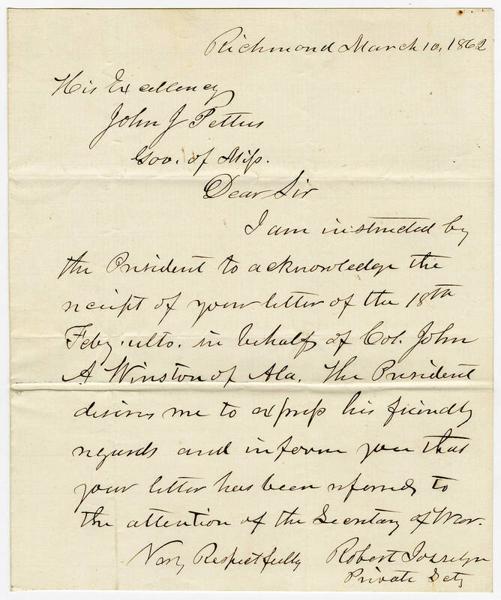 Richmond March 10, 1862
His Excellency
John J Pettus
Gov. of Miss.
Dear Sir
I am instructed by
the President to acknowledge the
receipt of your letter of the 18th
Feby. ulto. in behalf of Col. John
A Winston of Ala. The President
desires me to express his friendly
regards and inform you that
your letter has been referred to
the attention of the Secretary of War.
Very Respectfully Robert Josselyn
Private Secty